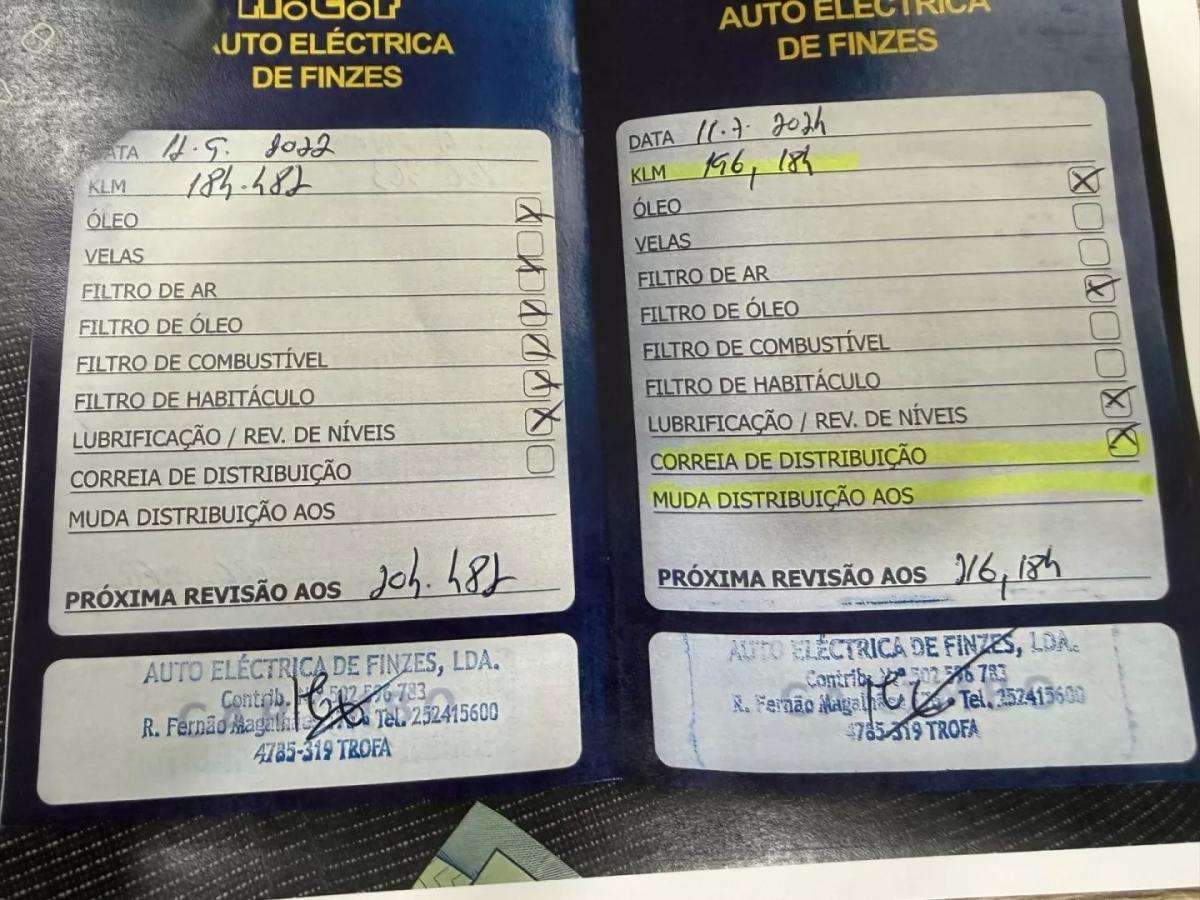 AUTO ELÉCTRICA
DE FINZES
DATA 12.9.2022
KLM 184.482
ÓLEO
VELAS
FILTRO DE AR
FILTRO DE ÓLEO
FILTRO DE COMBUSTÍVEL
FILTRO DE HABITÁCULO
LUBRIFICAÇÃO / REV. DE NÍVEIS
CORREIA DE DISTRIBUIÇÃO
MUDA DISTRIBUIÇÃO AOS
PRÓXIMA REVISÃO AOS 204.482
AUTO ELÉCTRICA DE FINZES, LDA.
Contrib. 502 536 783
R. Fernão Magalhães Tel. 252415600
4785-319 TROFA
AUTO ELÉCTRICA
DE FINZES
DATA 11.7.2024
KLM 196,184
ÓLEO
VELAS
FILTRO DE AR
FILTRO DE ÓLEO
FILTRO DE COMBUSTÍVEL
FILTRO DE HABITÁCULO
LUBRIFICAÇÃO / REV. DE NÍVEIS
CORREIA DE DISTRIBUIÇÃO
MUDA DISTRIBUIÇÃO AOS
PRÓXIMA REVISÃO AOS 216,184
AUTO ELÉCTRICA DE FINZES, LDA.
Contrib. Nº 502 536 783
R. Fernão Magalhães Tel. 252415600
4785-319 TROFA